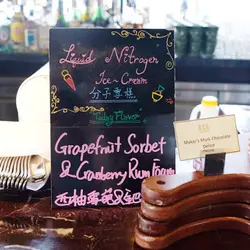 Liquid Nitrogen
Ice-Cream
分子雪糕
"Today Flavor"
Grapefruit Sorbet
& Cranberry Rum Foam
西柚雪葩
Maker's Mark Chocolate